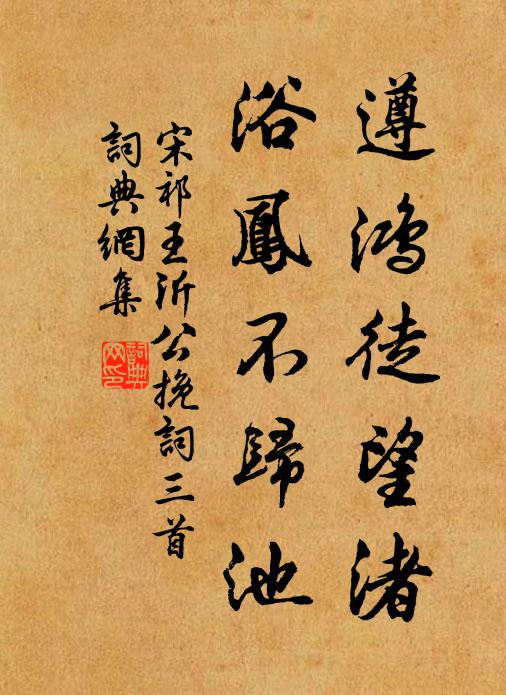 遵鴻徒望渚
浴鳳不歸池
宋祁王沂公挽詞三首
詞典網集
詞典
网印